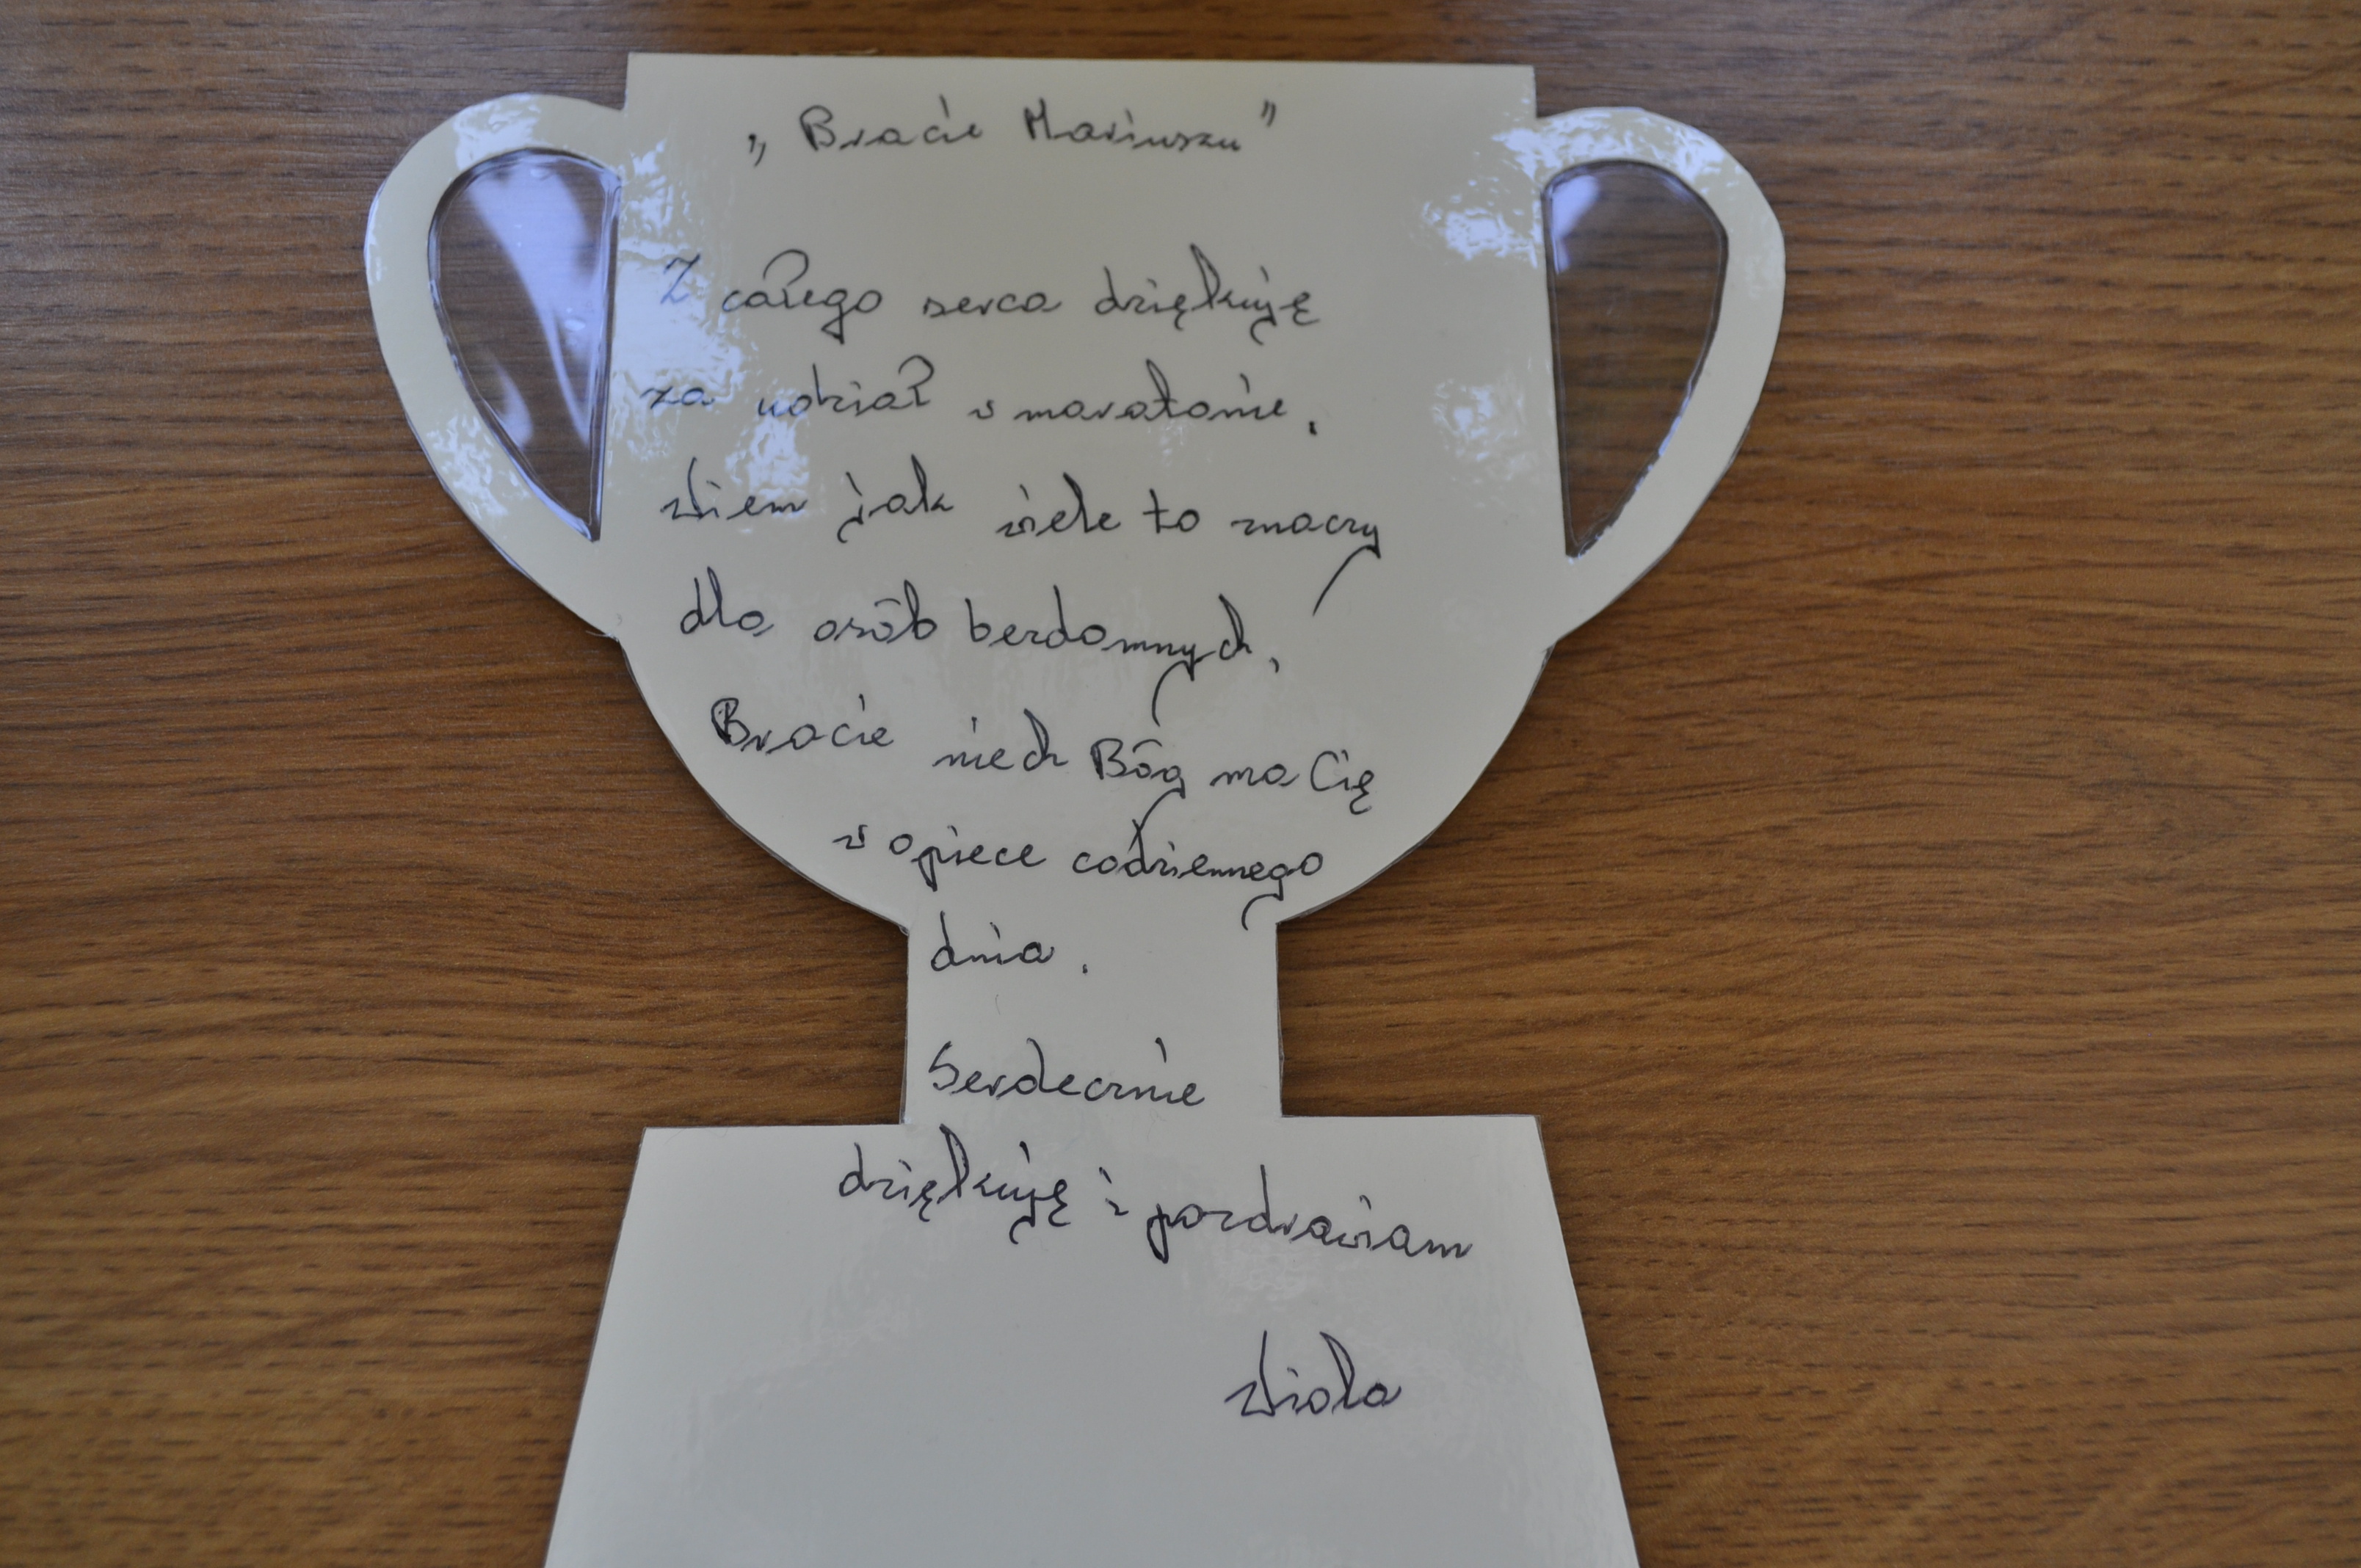 „Bracie Mariuszu”
Z całego serca dziękuję
za udział w maratonie.
Wiem jak wiele to znaczy
dla osób bezdomnych,
Bracie niech Bóg ma Cię
w opiece codziennego
dnia.
Serdecznie
dziękuję i pozdrawiam
Wiola